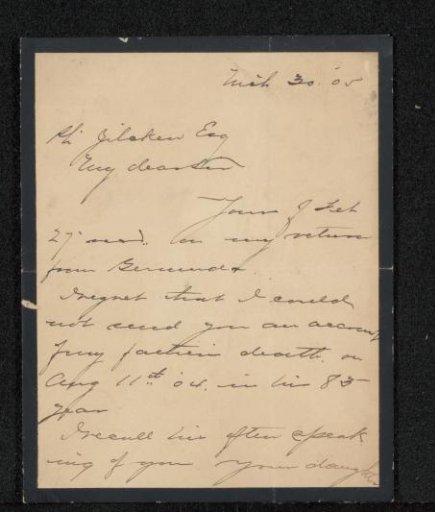 Mch 30. '05
Ph. Zilcken Esq
My dear Sir
Yours of Feb
27 recd. on my return
from Bermuda.
I regret that I could
not send you an account
of my father's death. on
Aug 11th '04. in his 85
year
I recall his often speak
ing of you your daughter